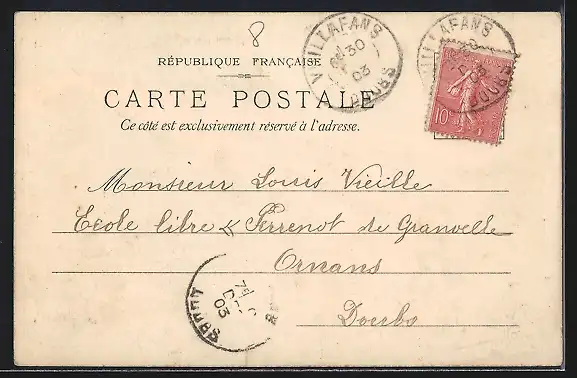 8
VUILLAFANS
30
03
DOUBS
VUILLAFANS
DOUBS
10
RÉPUBLIQUE FRANÇAISE
CARTE POSTALE
Ce côté est exclusivement réservé à l'adresse.
Monsieur Louis Vieille
Ecole libre Perrenot de Granvelle
Ornans
Doubs
03
DOUBS